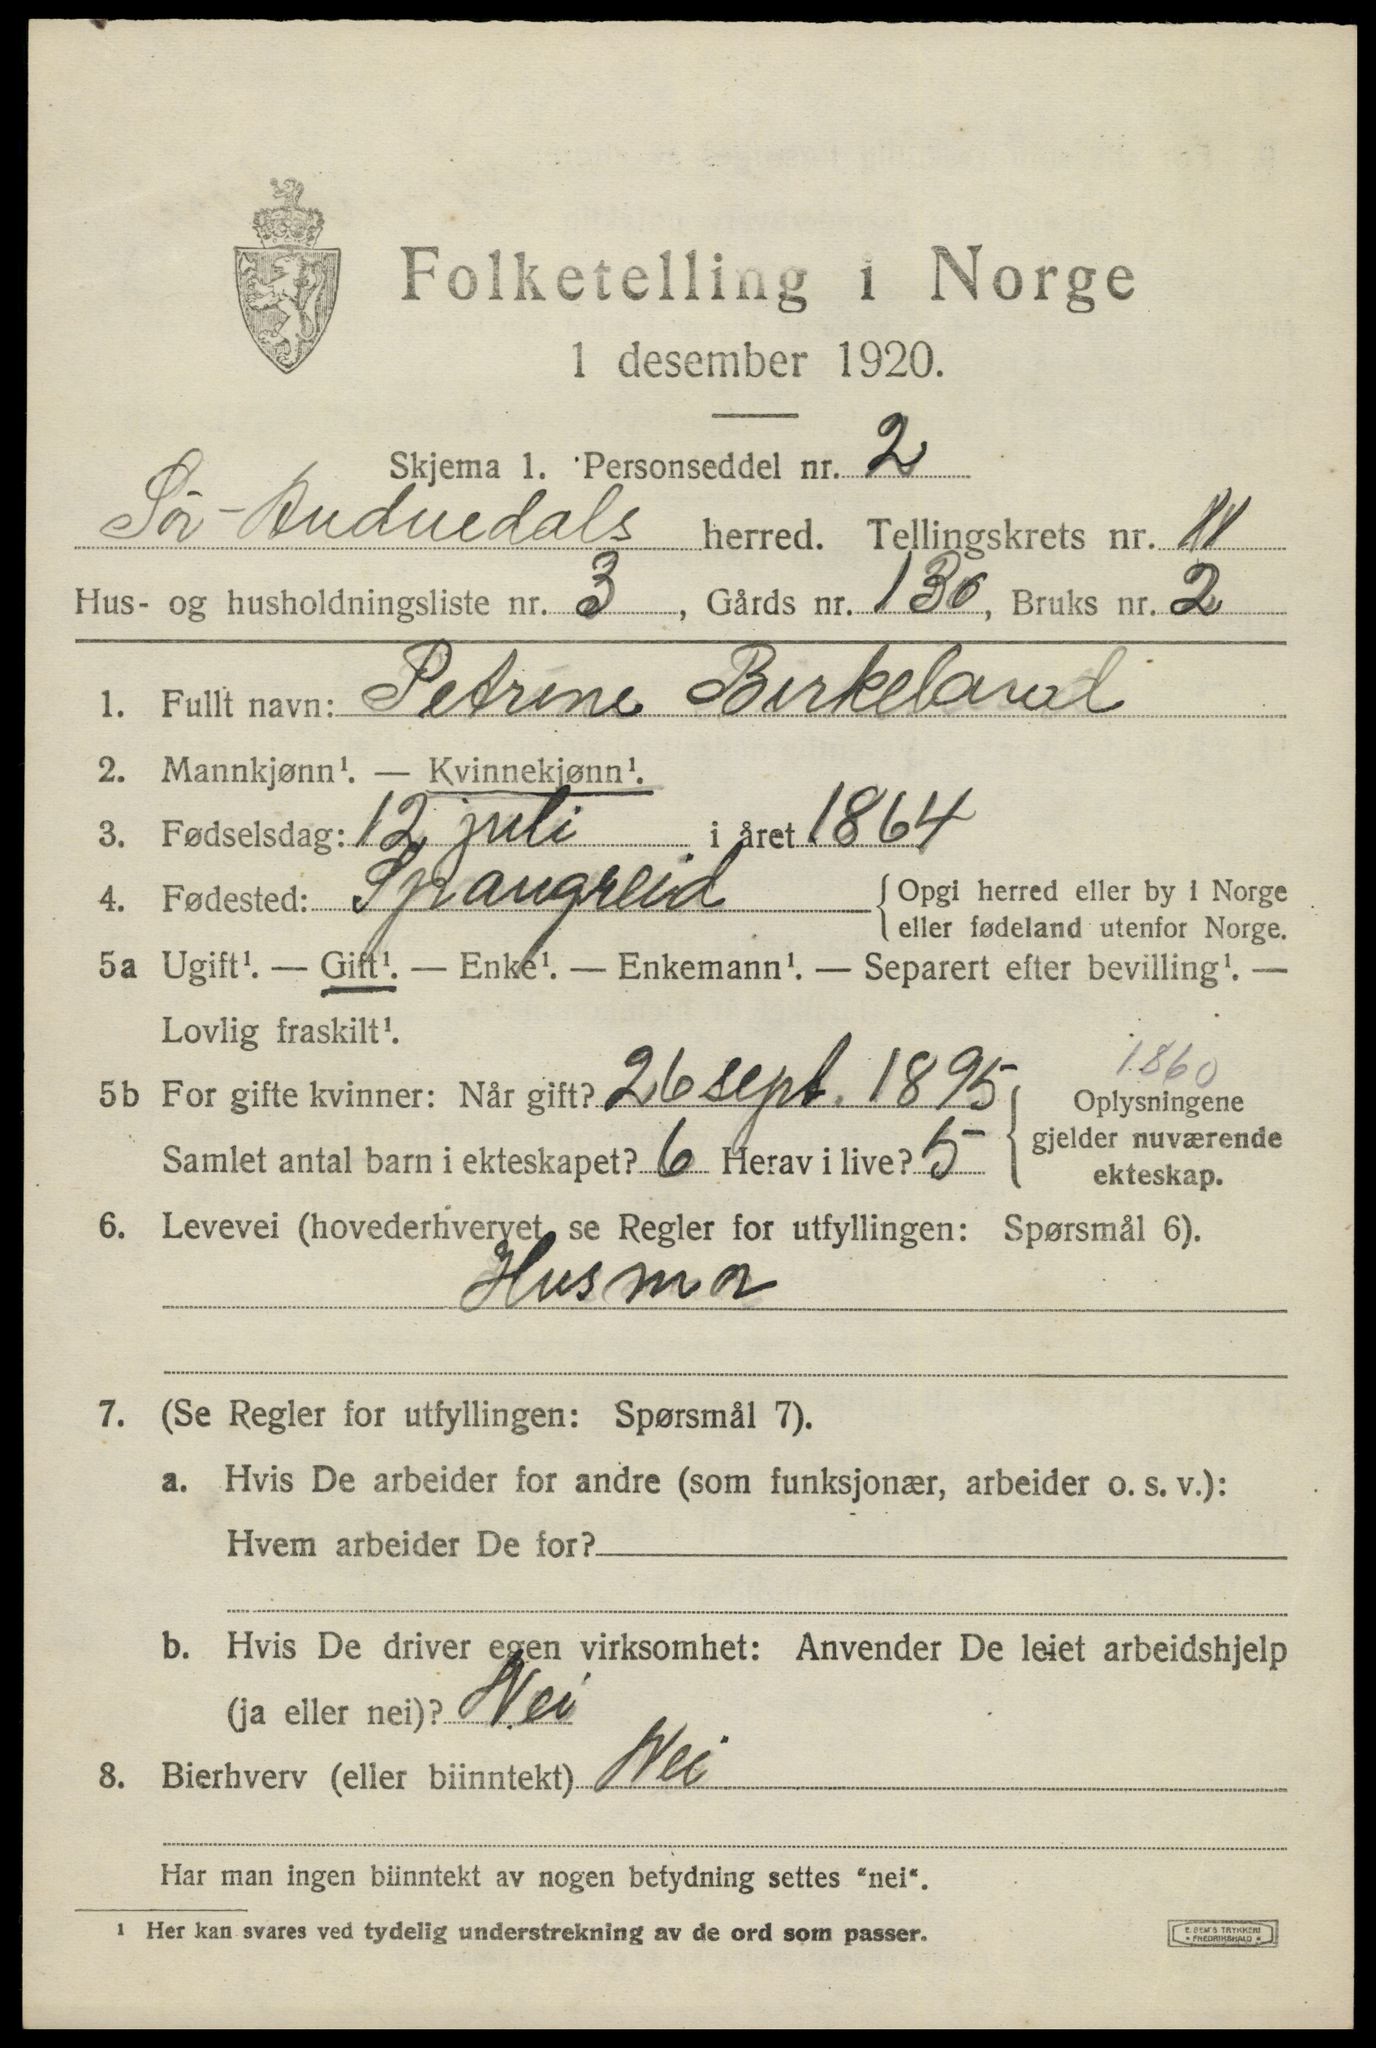 Folketelling i Norge
1 desember 1920.
Skjema 1. Personseddel nr. 2
Sör-Audnedals herred. Tellingskrets nr. 11
Hus- og husholdningsliste nr. 3, Gårds nr. 130, Bruks nr. 2
1. Fullt navn: Petrine Birkeland
2. Mannkjønn¹. — Kvinnekjønn¹.
3. Fødselsdag: 12 juli i året 1864
4. Fødested: Spangreid {Opgi herred eller by i Norge
eller fødeland utenfor Norge.
5a Ugift¹. — Gift¹. — Enke¹. — Enkemann¹. — Separert efter bevilling¹. —
Lovlig fraskilt¹.
1860
5b For gifte kvinner: Når gift? 26 sept. 1895 } Oplysningene
gjelder nuværende
Samlet antal barn i ekteskapet? 6 Herav i live? 5
ekteskap.
6. Levevei (hovederhvervet, se Regler for utfyllingen: Spørsmål 6).
Husmor
7. (Se Regler for utfyllingen: Spørsmål 7).
a. Hvis De arbeider for andre (som funksjonær, arbeider o. s. v.):
Hvem arbeider De for?
b. Hvis De driver egen virksomhet: Anvender De leiet arbeidshjelp
(ja eller nei)? Nei
8. Bierhverv (eller biinntekt) Nei
Har man ingen biinntekt av nogen betydning settes "nei".
¹ Her kan svares ved tydelig understrekning av de ord som passer.
E. SEM'S TRYKKERI
FREDRIKSHALD